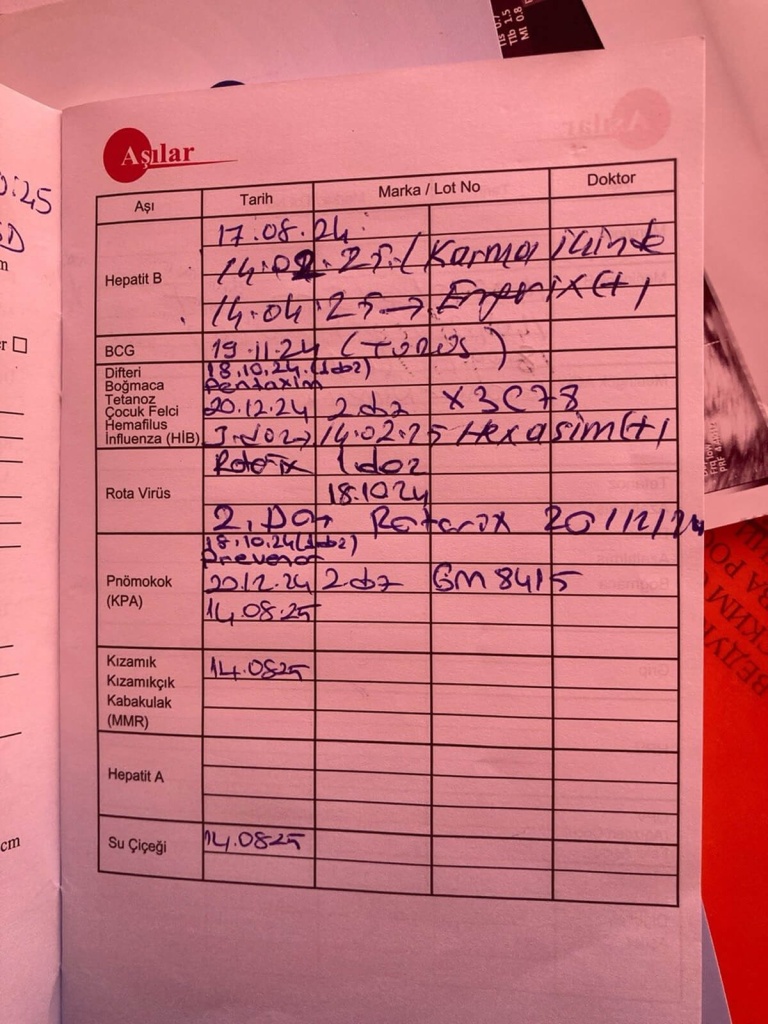 Tıb 1.5
MI 0.8
0:25
Aşılar
Aşı Tarih Marka / Lot No Doktor
Hepatit B
17.08.24
14.02.25 (Karma içinde
14.04.25 → (+)
BCG 19.11.24 (
Difteri
Boğmaca
Tetanoz
Çocuk Felci
Hemafilus
İnfluenza (HİB)
18.10.24 (1doz)
Pentaxim
20.12.24 2doz X3C78
3.doz → 14.02.25 Hexasim(+)
Rota Virüs
Rotarix 1doz
18.10.24
2. Do Rotarix 20/12/24
Pnömokok
(KPA)
18.10.24(1doz)
Prevenar
20.12.24 2doz GM8415
14.08.25
Kızamık
Kızamıkçık
Kabakulak
(MMR)
14.0825
Hepatit A
Su Çiçeği 14.0825
cm